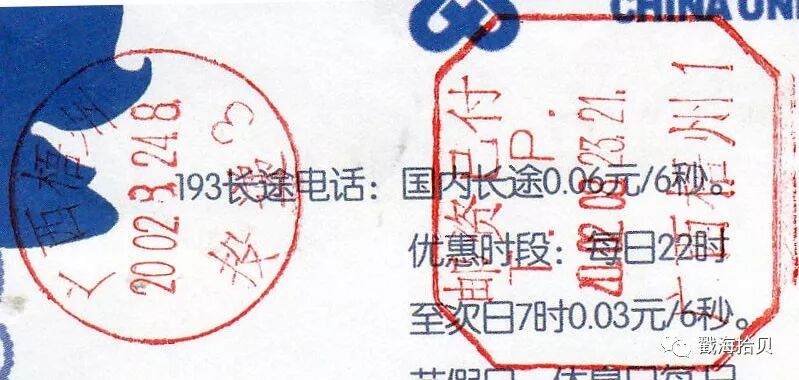 CHINA UNI
广西梧州
2002.3.24.8
投递 3
邮资已付
T. P.
2002.03.23.21.
广西梧州1
193长途电话：国内长途0.06元/6秒。
优惠时段：每日22时
至次日7时0.03元/6秒。
戳海拾贝